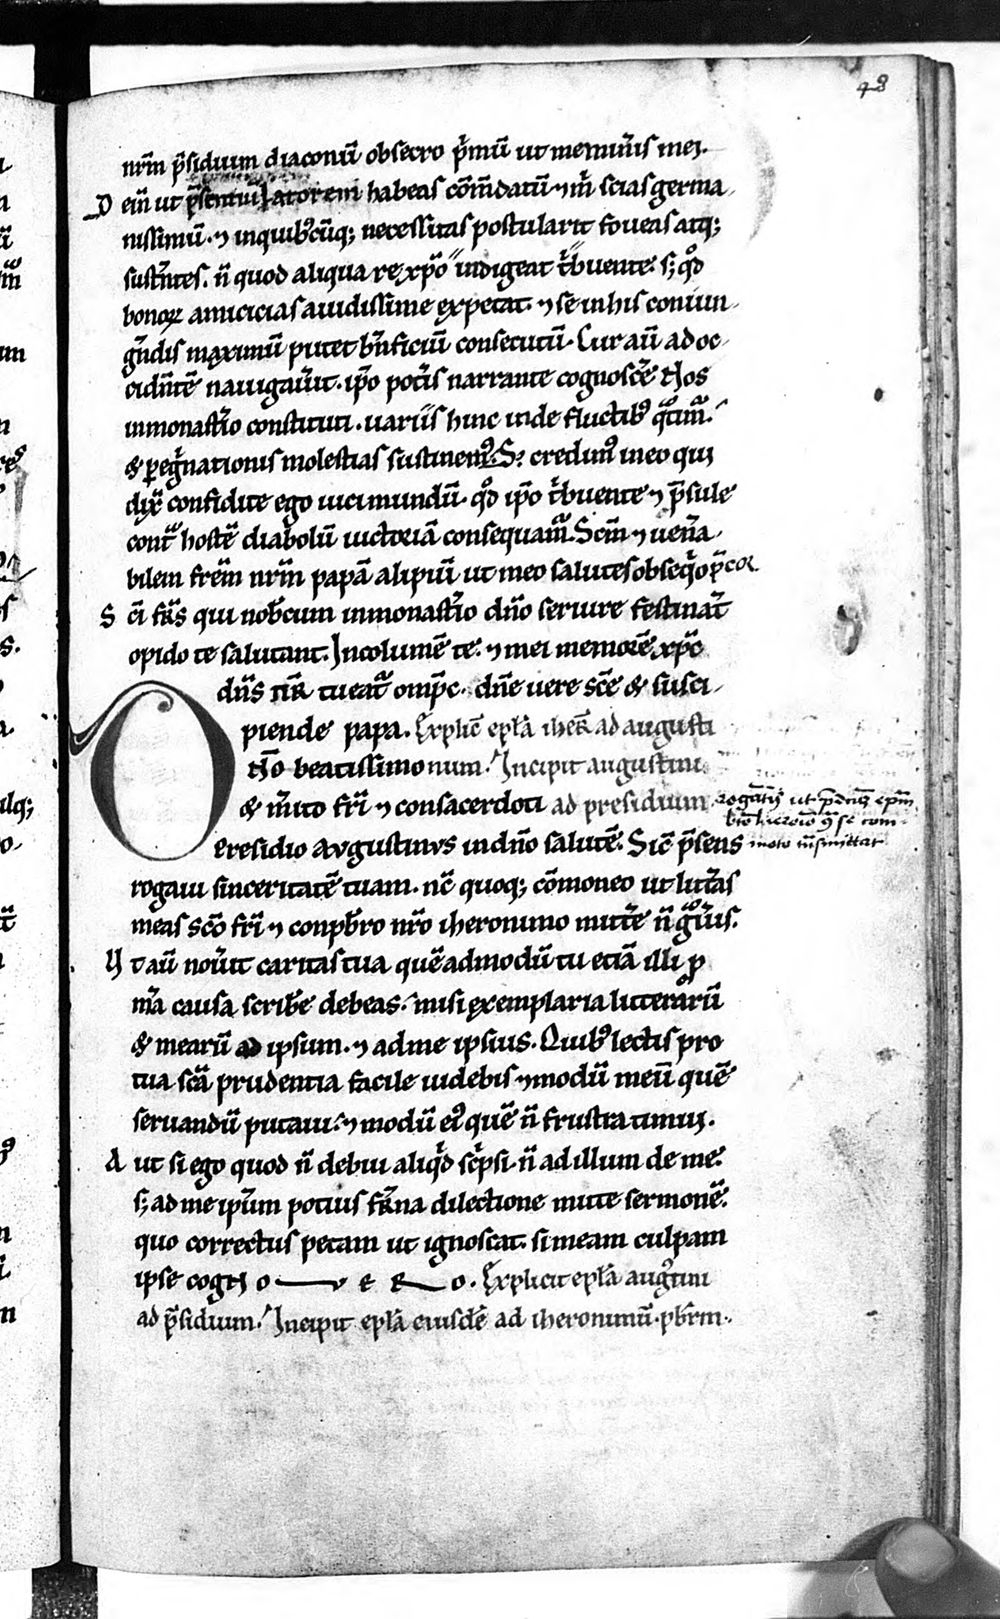 48
nr̄m p̄sidium diaconū obsecro p̄mū ut memin̄is mei.
D ein̄ ut p̄sentiū latorem habeas cōm̄datū ⁊ m̄ scias germa
nissimū. ⁊ in quibꝰcūq; necessitas postularit foueas atq;
sust̄ntes. n̄ quod aliqua re xp̄o indigeat t̄buente. s; qd̄
bonoꝝ amicicias auidissime expetat. ⁊ se in his coniun
gn̄dis maximū putet bn̄ficiū consecutū. Cur aū ad oc
cidn̄tē nauigau̅it. ip̄o pot̄is narrante cognosc̄e Nos
in monast̄io constituti. uariis hinc inde fluctibꝰ q̄tim̄.
& p̱eḡnationis molestias sustinemꝰ. S; credimꝰ in eo qui
dix̄ confidite ego uici mundū. qd̄ ip̄o t̄buente ⁊ p̄sule
cont̄ hostē diabolū uictoriā consequam̄. Scm̄ ⁊ uen̄a
bilem frēm nr̄m papā alipiū ut meo salutes obseq̄o p̄cor
S ci fr̄s qui nob̄cum in monast̄io dn̄o seruire festinan̄t
opido te salutant. Incolumē te. ⁊ mei memorē xp̄c
dn̄s nr̄ tueat̄ omp̄c. dn̄e uere scē & susci
piende papa. Explic̄ epl̄a iher̄ ad augusti
DNo beatissimo num. Incipit augustini
& m̄ito fr̄i ⁊ consacerdoti ad presidium rogatꝰ ut p̄dictꝰ epm̄
moto tn̄smittat
Presidio Avgustinvs in dn̄o salutē. Sic̄ p̄sens
rogaui sinceritatē tuam. nc̄ quoq; cōmoneo ut litt̄as
meas scō fr̄i ⁊ conpb̄ro nr̄o iheronimo mitt̄e n̄ ḡu̅is.
U t aū nou̅it caritas tua quēadmodū tu etiā illi p̱
mēa causa scrib̄e debeas. misi exemplaria litterarū
& mearū ad ipsum. ⁊ ad me ipsius. Quibꝰ lectis pro
tua scā prudentia facile uidebis ⁊ modū meū quē
seruandū putaui. ⁊ modū eiꝰ quē n̄ frustra timui.
A ut si ego quod n̄ debui aliqd̄ sc̄psi. n̄ ad illum de me.
s; ad me ip̄um potius fr̄na dilectione mitte sermonē.
quo correctus petam ut ignoscat. si meam culpam
ipse cogNoVERo. Explicit epl̄a augꝰtini
ad p̄sidium. Incipit epl̄a eiusdē ad iheronimū. pb̄rm.